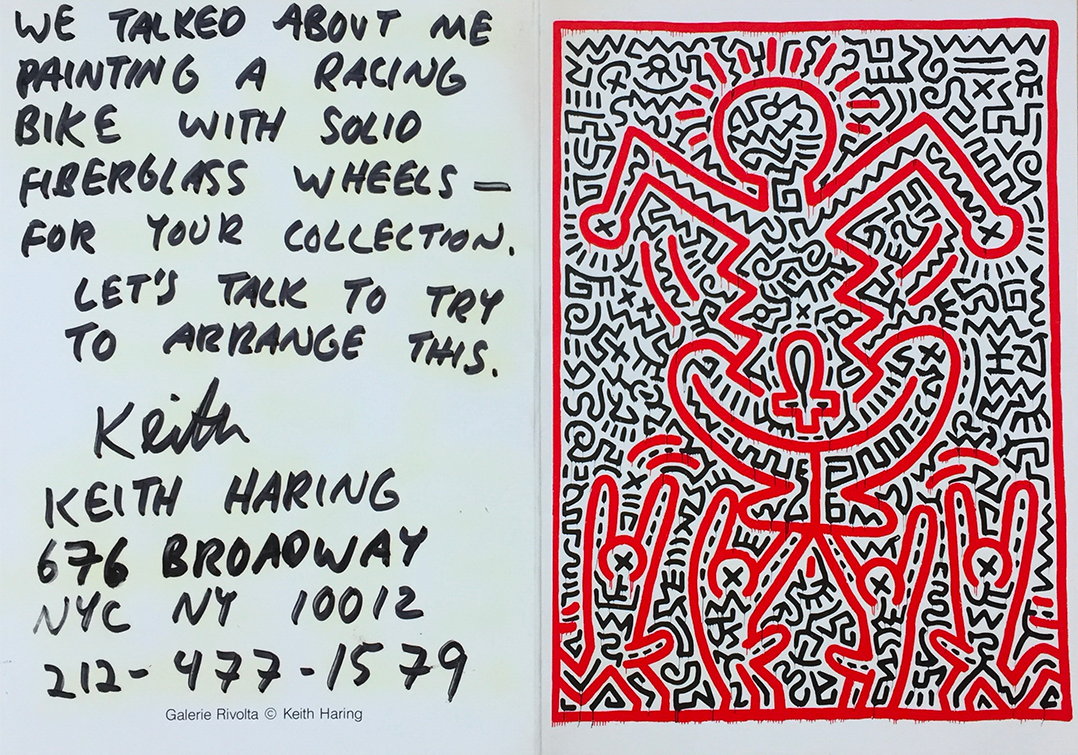 WE TALKED ABOUT ME
PAINTING A RACING
BIKE WITH SOLID
FIBERGLASS WHEELS —
FOR YOUR COLLECTION.
LET'S TALK TO TRY
TO ARRANGE THIS.
Keith
KEITH HARING
676 BROADWAY
NYC NY 10012
212-477-1579
Galerie Rivolta © Keith Haring